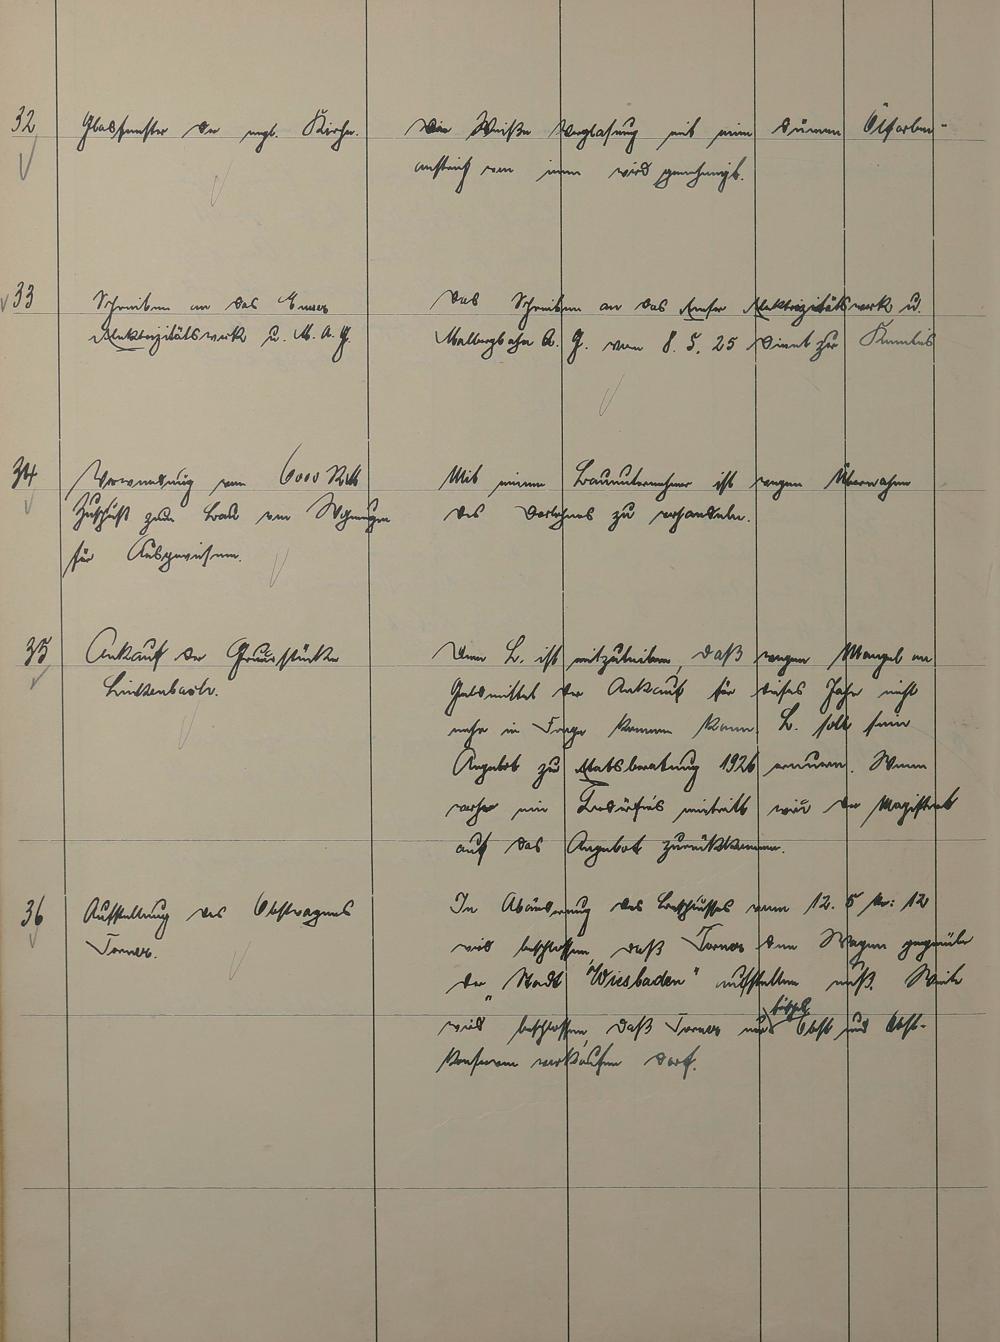 32
Glasfenster der engl. Kirche.
Die Weiße Verglasung mit einem dünnen Ölfarben-
anstrich von innen wird genehmigt.
33
Schreiben an das Emser
Elektrizitätswerk u. M. A. G.
Das Schreiben an das Emser Elektrizitätswerk u.
Malbergbahn A. G. vom 8. 5. 25 dient zur Kenntnis
34
Verwendung von 6000 RM
Zuschuß zum Bau von Wohnungen
für Ausgewiesene.
Mit einem Bauunternehmer ist wegen Übernahme
des Darlehens zu verhandeln.
35
Ankauf der Grundstücke
Linkenbach.
Dem L. ist mitzuteilen, daß wegen Mangel an
Geldmittel der Ankauf für dieses Jahr nicht
mehr in Frage kommen kann. L. soll sein
Angebot zu Etatsberatung 1926 erneuern. Wenn
vorher ein Bedürfnis eintritt wird der Magistrat
auf das Angebot zurückkommen.
36
Aufstellung des Obstwagens
Forner.
In Abänderung des Beschlusses vom 12. 5 Nr: 12
wird beschlossen, daß Forner den Wagen gegenüber
der "Stadt Wiesbaden" aufstellen muß. Weiter
wird beschlossen, daß Forner nur Obst und Obst-
konserven verkaufen darf.